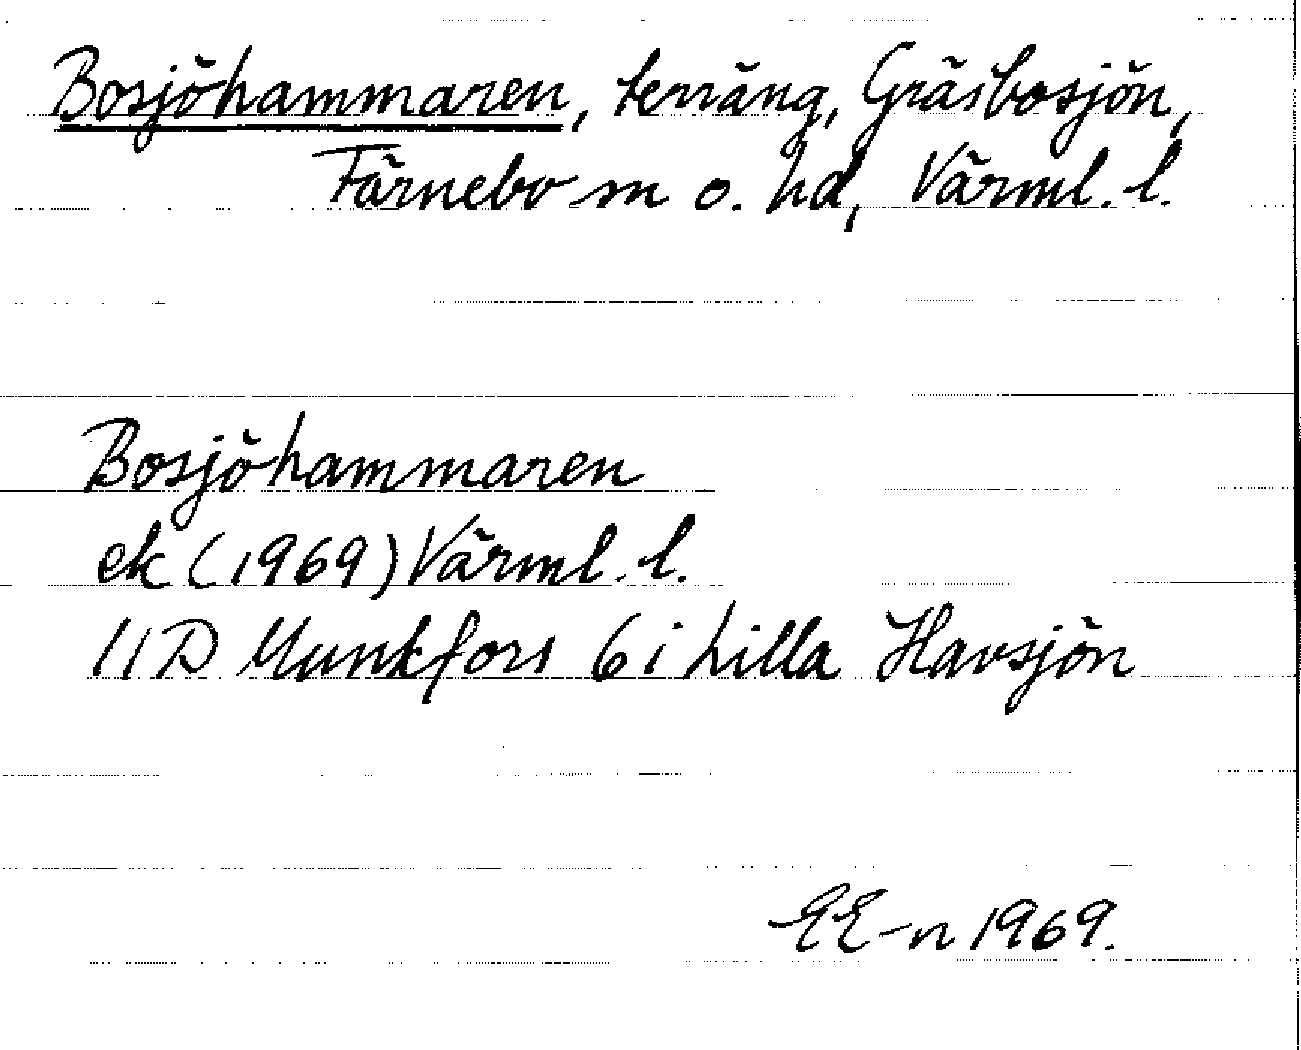 Bosjöhammaren, terräng, Gräsbosjön,
Färnebo sn o. hd, Värml. l.
Bosjöhammaren
ek (1969) Värml. l.
11D Munkfors 6i Lilla Havsjön
EE-n 1969.